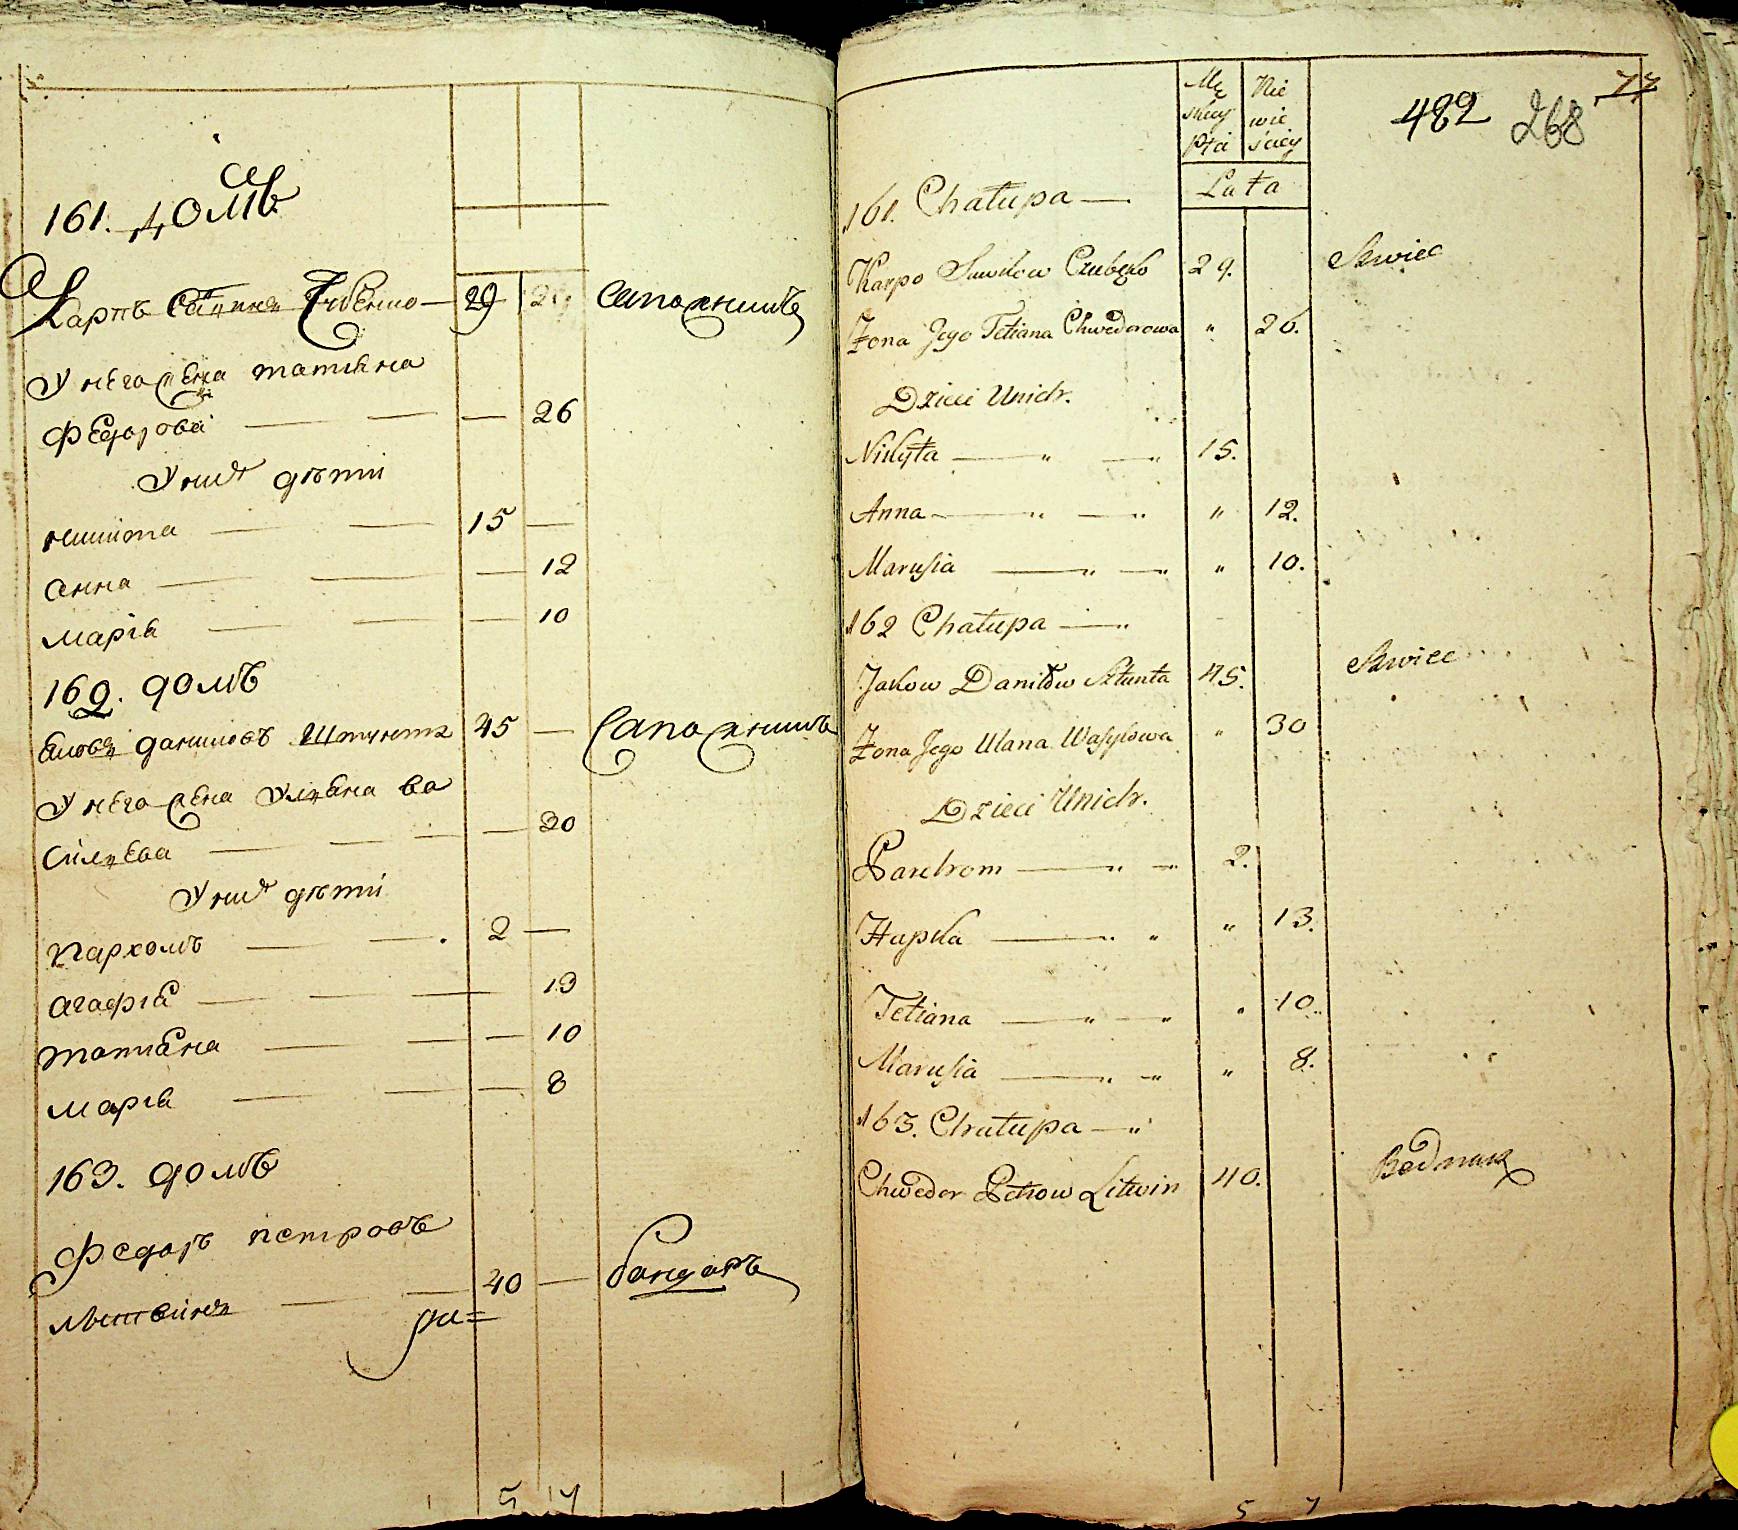 161. домъ
Карпъ Савинъ Чубенко — 29 сапожникъ
У него жена татияна
Федорова — — — 26
У них дѣти
никита — — 15 —
анна — — — 12
мариа — — — 10
162. домъ
Яковъ даниловъ Штунта 45 — Сапожникъ
У него жена Улияна ва
силиева — — — — 30
У них дѣти
пархомъ — — 2 —
агафиа — — — 13
татиана — — — 10
мариа — — — 8
163. домъ
Федоръ петровъ
литвинъ — — 40 — бондаръ
5 7
Mę Nie
skiey wie
Płci sciey
Lata
482 268 77
161. Chałupa —
Karpo Sawikow Czubęko 29. Szwiec
Żona Jego Tetiana Chwedorowa „ 26.
Dzieci Unich.
Nikyta — „ — „ 15.
Anna — „ — „ „ 12.
Marusia — „ — „ „ 10.
162 Chałupa — „
Jakow Daniłow Sztunta 45. Szwiec
Żona Jego Ulana Wasylowa „ 30
Dzieci Unich.
Parchom — „ — 2.
Hapka — „ „ „ 13.
Tetiana — „ — „ „ 10.
Marusia — „ — „ „ 8.
163. Chałupa — „
Chwedor Petrow Litwin 40. Bednarz
5 7